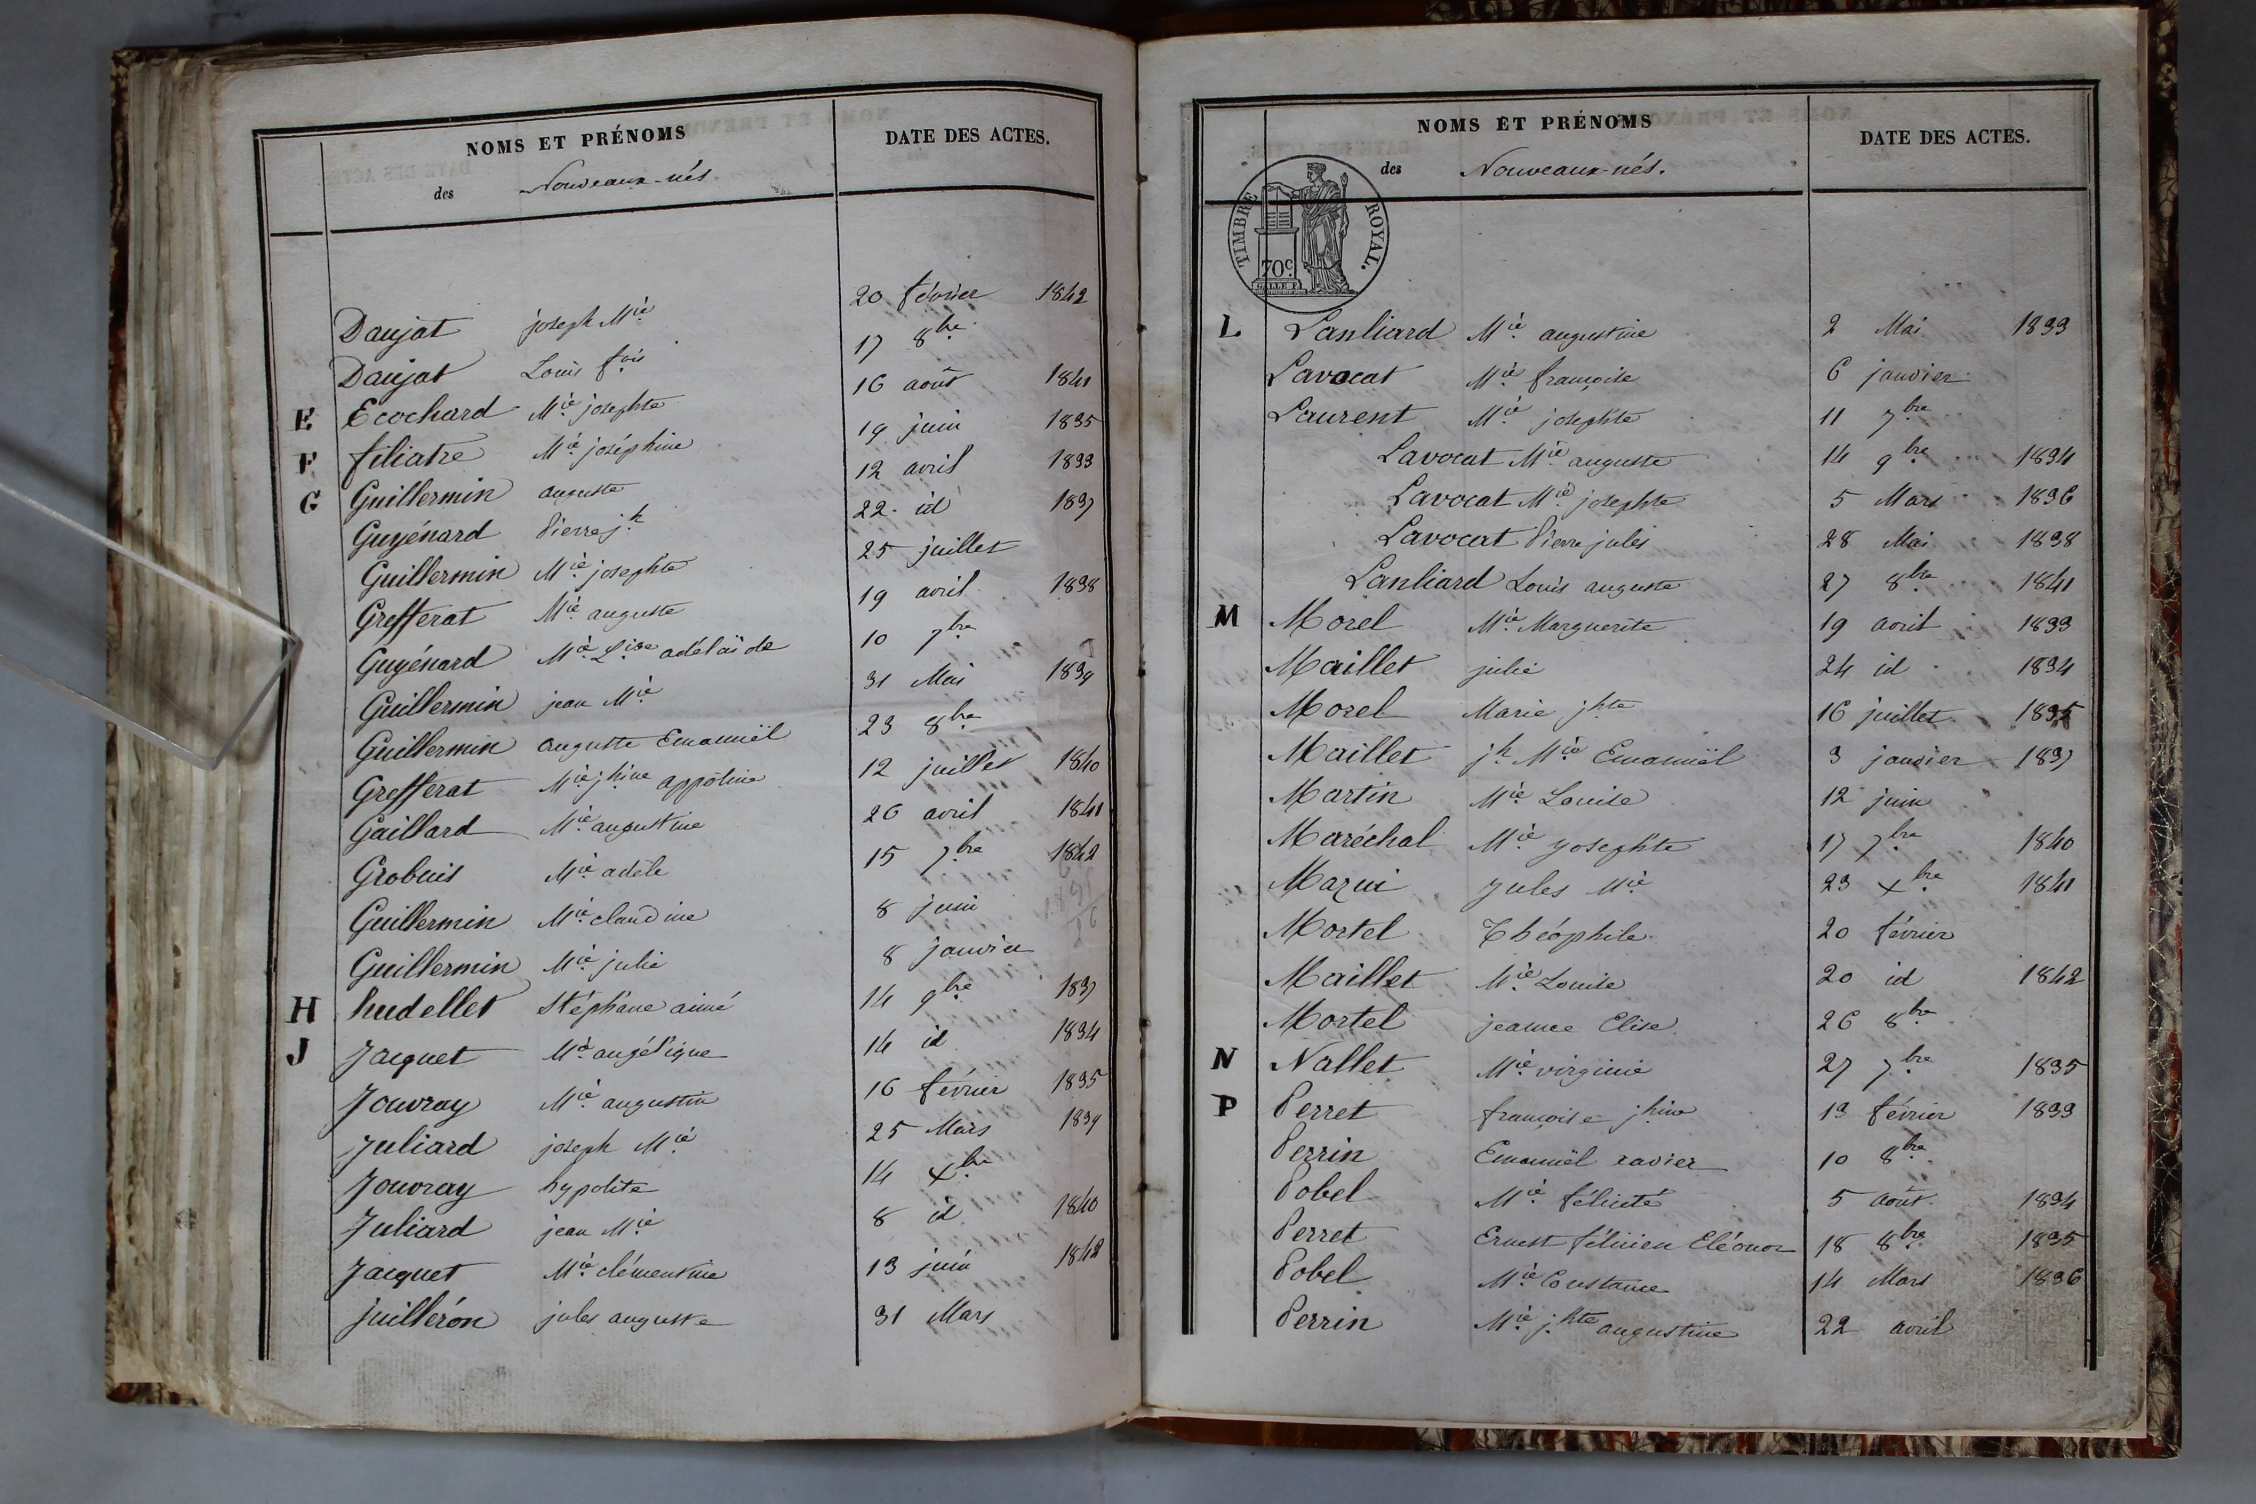 NOMS ET PRÉNOMS DATE DES ACTES.
des Nouveaux-nés
Daujat joseph Mie 20 février 1842
Daujat Louis fois 17 8bre
E Ecochard Mie josephte 16 août 1841
F filiatre Mie joséphine 19 juin 1835
G Guillermin auguste 12 avril 1833
Guyénard Pierre jh 22 id 1837
Guillermin Mie josephte 25 juillet
Grefferat Mie auguste 19 avril 1838
Guyénard Mie Lise adélaïde 10 7bre
Guillermin jean Mie 31 Mai 1839
Guillermin auguste Emanuël 23 8bre
Grefferat Mie jhine appoline 12 juillet 1840
Gaillard Mie augustine 26 avril 1841
Grobuis Mie adèle 15 7bre 1842
Guillermin Mie claudine 8 juin
Guillermin Mie julie 8 janvier
H hudellet Stéphane aimé 14 9bre 1837
J Jacquet Mie angélique 14 id 1834
Jouvray Mie augustin 16 février 1835
Juliard joseph Mie 25 Mars 1839
Jouvray hypolite 14 xbre
Juliard jean Mie 8 id 1840
Jacquet Mie clémentine 13 juin 1842
juilléron jules auguste 31 Mars
NOMS ET PRÉNOMS DATE DES ACTES.
des Nouveaux-nés.
TIMBRE ROYAL.
70c.
L Lanliard Mie augustine 2 Mai 1833
Lavocat Mie françoise 6 janvier
Laurent Mie josephte 11 7bre
Lavocat Mie auguste 14 9bre 1834
Lavocat Mie josephte 5 Mars 1836
Lavocat Pierre jules 28 Mai 1838
Lanliard Louis auguste 27 8bre 1841
M Morel Mie Marguerite 19 avril 1833
Maillet julie 24 id 1834
Morel Marie jhte 16 juillet 1835
Maillet jh Mie Emanuël 3 janvier 1837
Martin Mie Louise 12 juin
Maréchal Mie Josephte 17 7bre 1840
Mazui Jules Mie 23 xbre 1841
Mortel Théophile 20 février
Maillet Mie Louise 20 id 1842
Mortel jeanne Elise 26 8bre
N Nallet Mie virginie 27 7bre 1835
P Perret françoise jhine 13 février 1833
Perrin Emanuël xavier 10 8bre
Pobel Mie félicité 5 août 1834
Perret Ernest félicien Eléonor 18 8bre 1835
Pobel Mie Constance 14 Mars 1836
Perrin Mie jhte augustine 22 avril